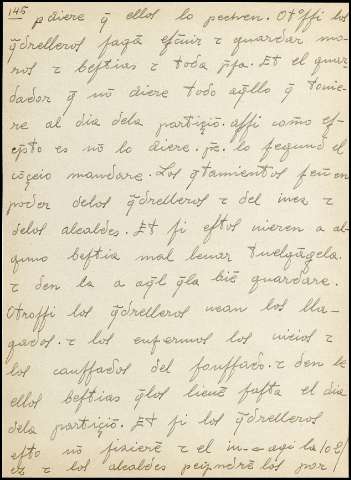 145 pdiere q̄ ellos lo pechen. Otoſſi los
q̄drelleros fagā eſcuir τ guardar mo-
ros τ beſtias τ toda p̄ſa. Et el guar
dador q̄ nō diere todo aq̄llo q̄ touie-
re al dia dela particiō. aſſi como eſ-
cpto es nō lo diere. pe. lo ſegund el
cōceio mandare. Los q̄tamientos ſeē en
poder delos q̄drelleros τ del iuez τ
delos alcaldes. Et ſi eſtos uieren a al-
guno beſtia mal leuar tuelgāgela.
τ den la a aq̄l q̄la biē guardare.
Otroſſi los q̄drelleros uean los lla-
gados. τ los enfermos los uieios τ
los canſſados del fonſſado. τ den le
ellos beſtias q̄los lieuē faſta el dia
dela particiō. Et ſi los q̄drelleros
eſto nō fizierē τ el
τ los alcaldes los por